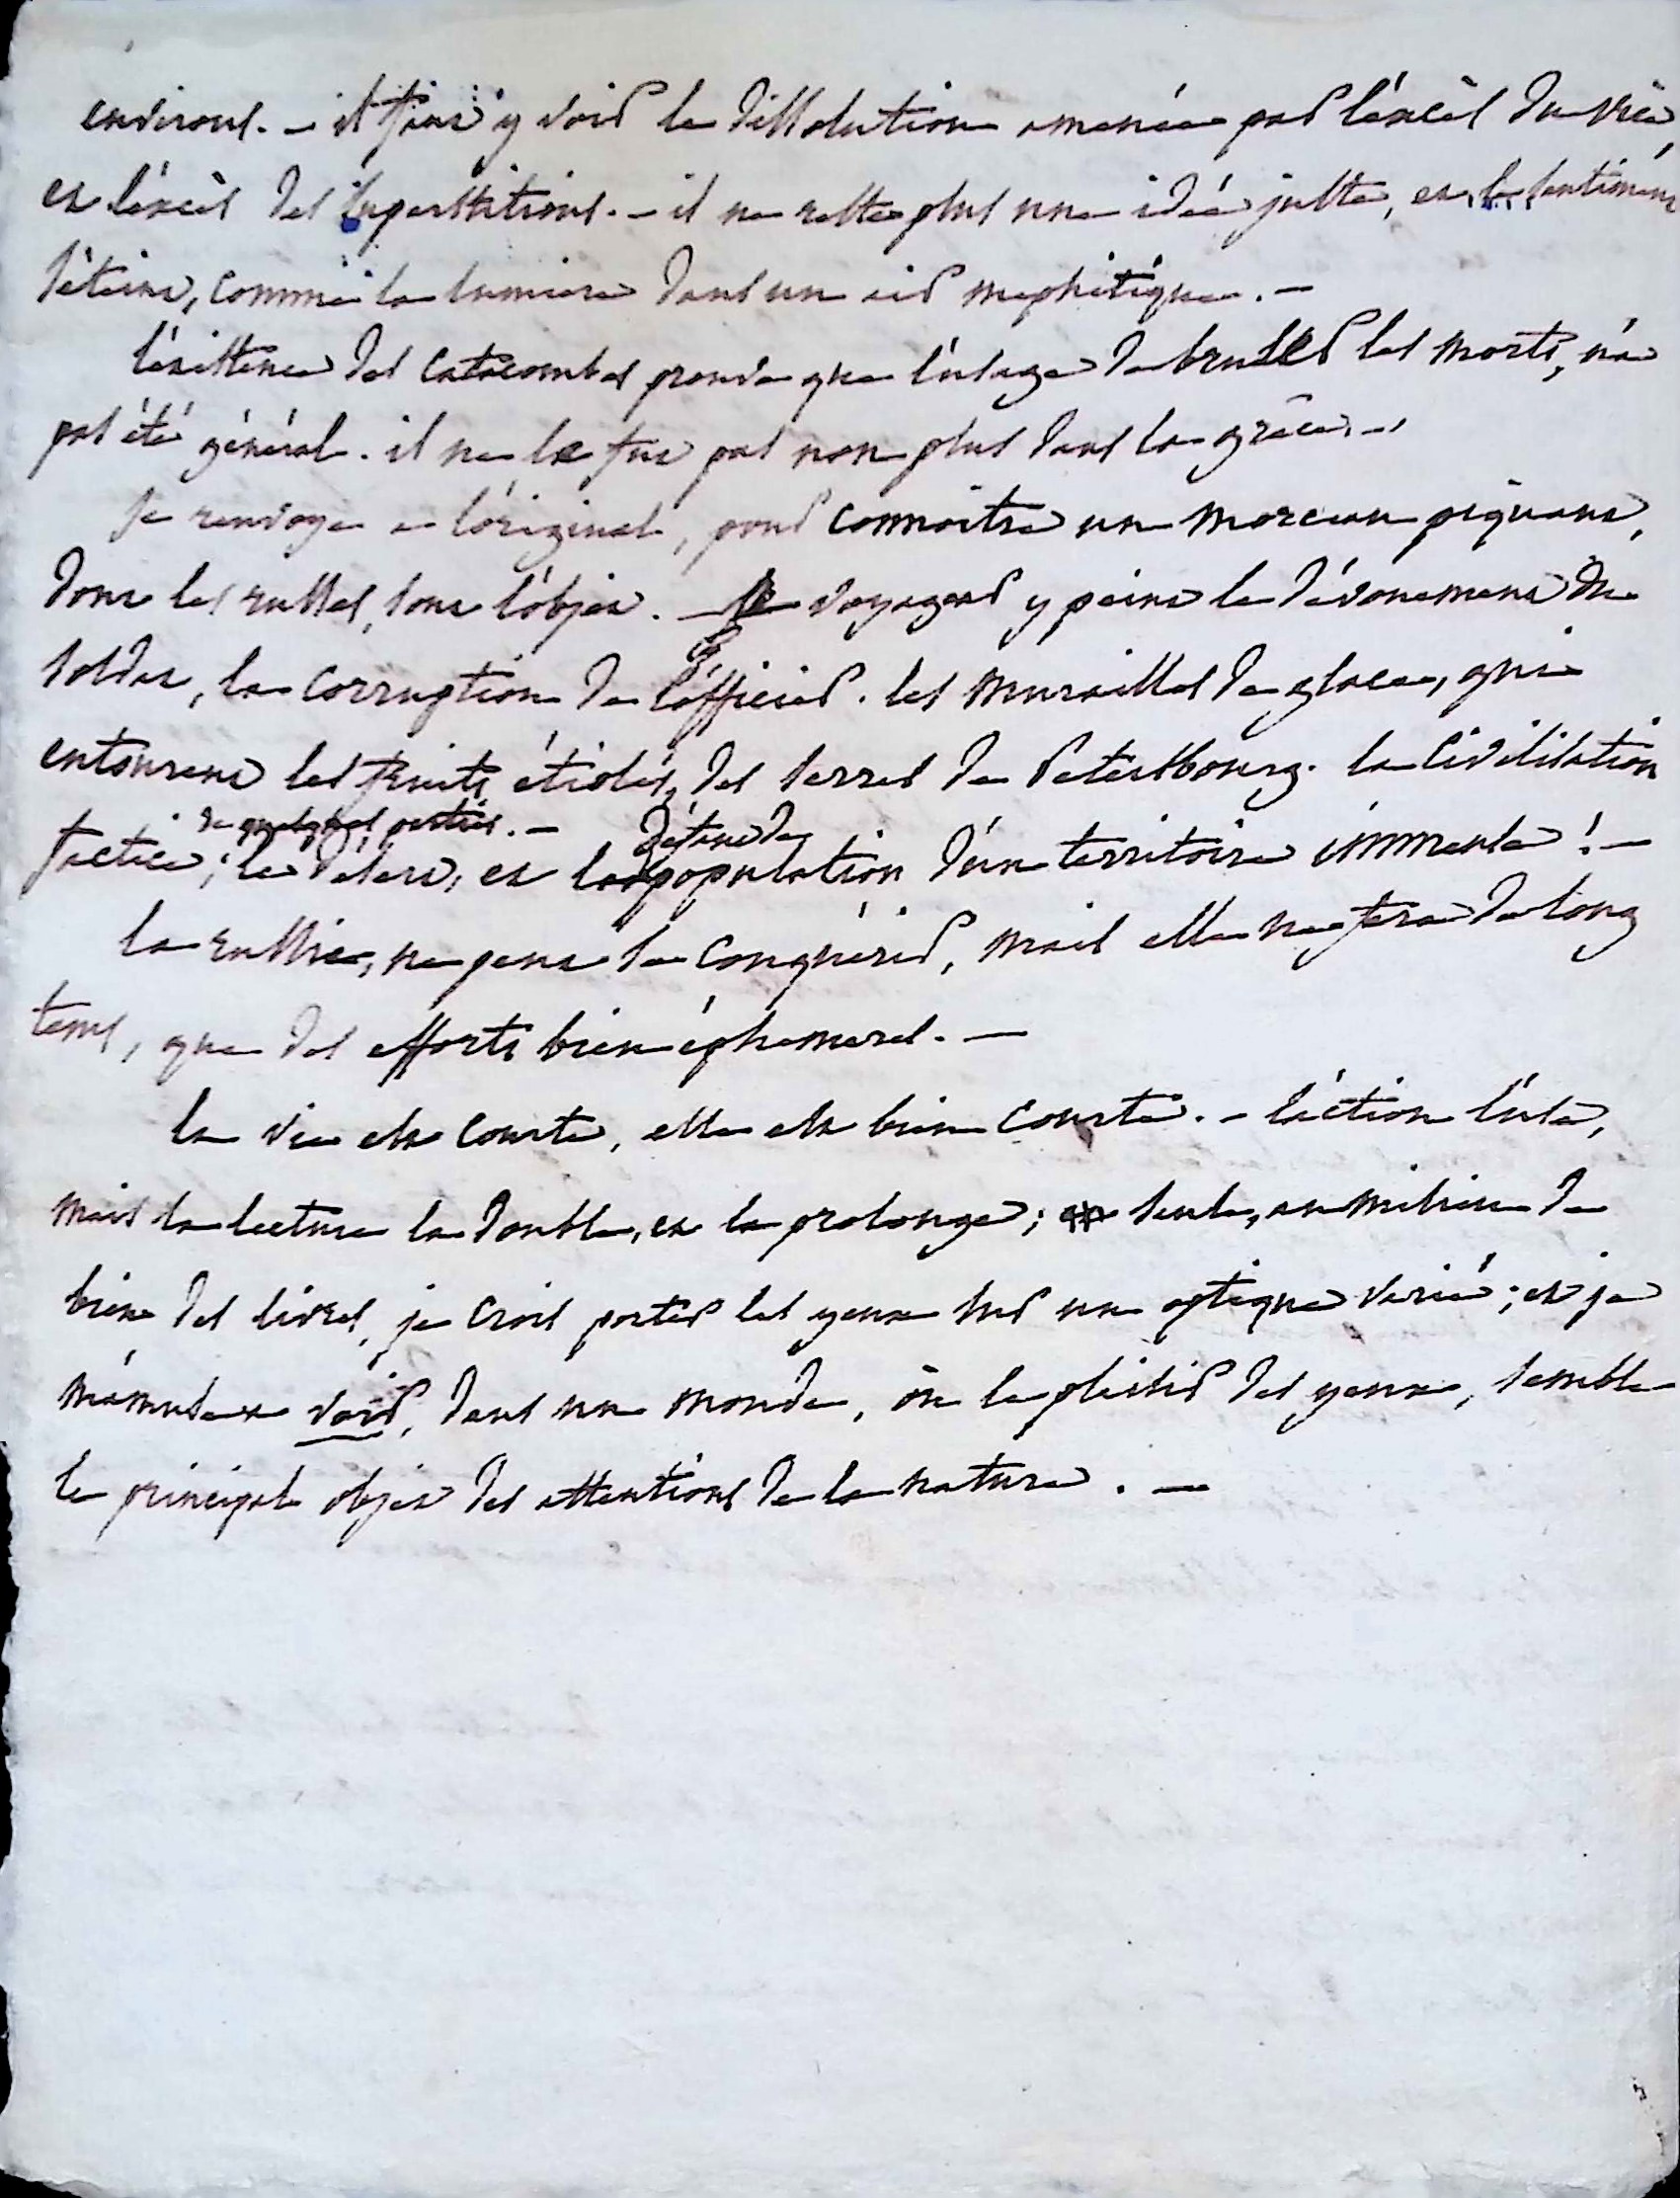 environs. - il faut y voir la dissolution amenée par l'éxcès du vice,
et l'éxcès des superstitions. - il ne reste plus une idée juste, et le sentiment
s'éteint, comme la lumiere dans un air mephitique. -
l'éxistence des catacombes prouve que l'usage de bruler les morts, n'a
pas été général. il ne le fut pas non plus dans la grêce. -
je renvoye a l'original, pour connoitre un morceau piquant,
dont les russes, sont l'objet. - le voyageur y peint le dévouement du
soldat, la corruption de l'officier. les murailles de glace, qui
entourent les fruits étiolés, des serres de Petersbourg. la civilisation
de quelques parties. - défaut de
factice; le désert, et la population d'un territoire immense! -
la russie, ne peut se conquérir, mais elle ne fera de long
tems, que des efforts bien éphemeres. -
la vie est courte, elle est bien courte. - l'action l'use,
mais la lecture la double, et la prolonge; seule, au milieu de
bien des livres, je crois porter les yeux sur une optique varié; et je
m'amuse a voir, dans un monde, où le plaisir des yeux, semble
le principal objet des attentions de la nature. -